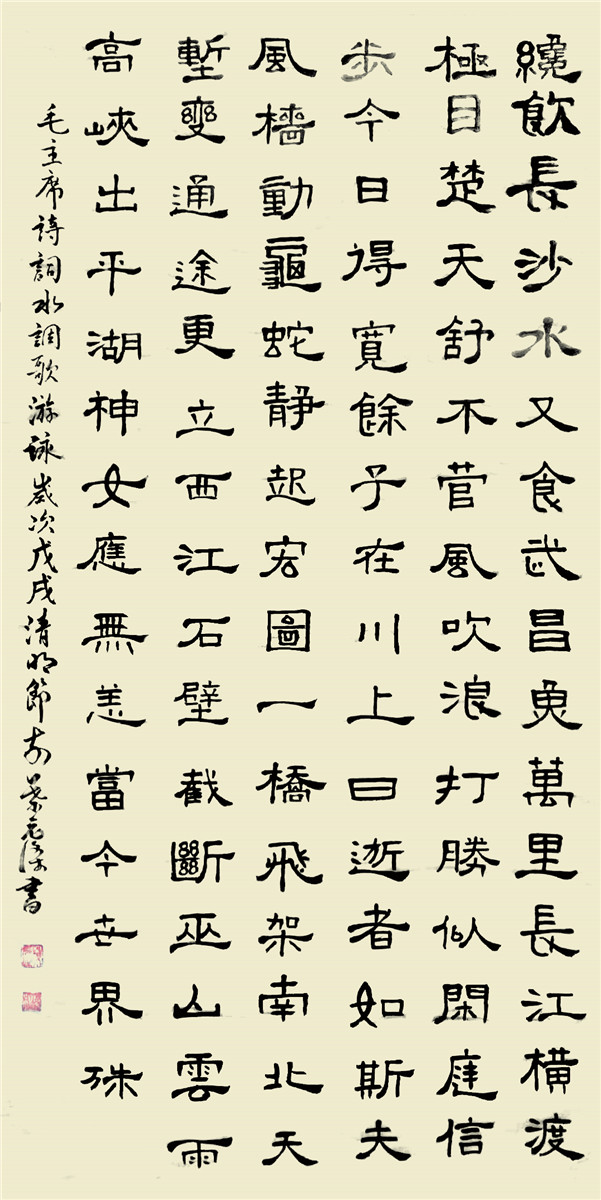 纔飲長沙水又食武昌魚萬里長江橫渡
極目楚天舒不菅風吹浪打勝似閑庭信
步今日得寬餘子在川上曰逝者如斯夫
風檣動龜蛇靜起宏圖一橋飛架南北天
塹變通途更立西江石壁截斷巫山雲雨
高峽出平湖神女應無恙當今世界殊
毛主席詩詞水調歌游詠歲次戊戌清明節前書